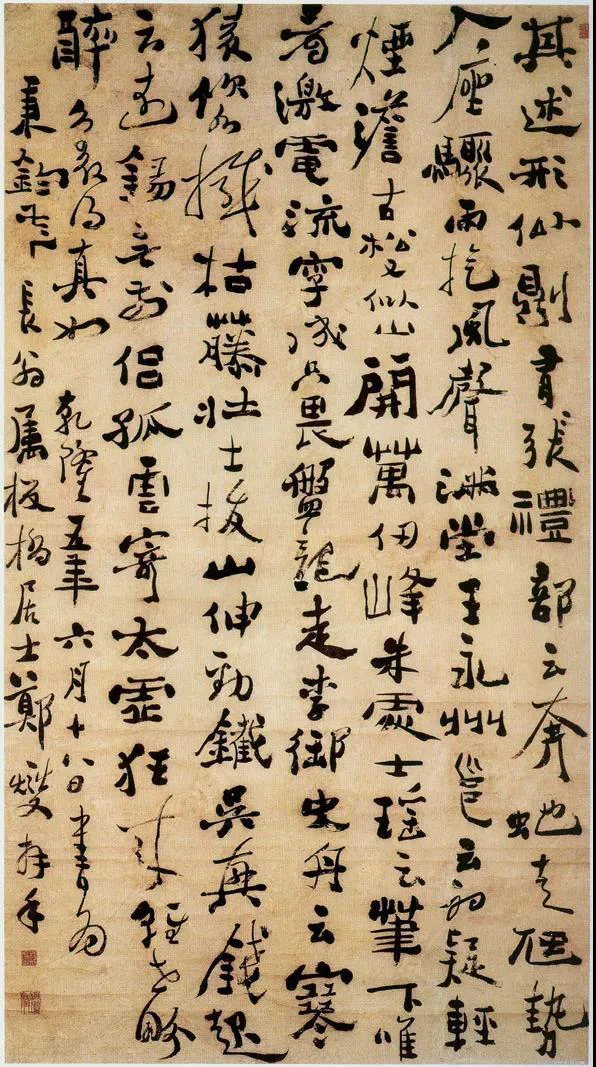 其述形似則有張禮部云奔虵走虺勢
入座驟雨旋風聲滿堂王永州邕云初疑輕
煙澹古松又似山開萬仞峰朱處士瑤云筆下唯
看激電流字成只畏盤龍走李御史舟云寒
猿飲水撼枯藤壯士拔山伸勁鐵吳興錢起
云遠錫無前侶孤雲寄太虛狂來輕世界
醉得真如乾隆五年六月十八日書為
秉鈞長翁屬板橋居士鄭燮拜手